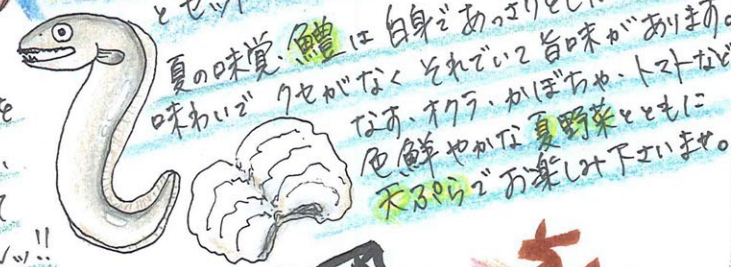 とセット
夏の味覚、鱧は白身であっさりとした
味わいで クセがなく それでいて 旨味があります。
なす、オクラ、かぼちゃ、トマトなど
色鮮やかな 夏野菜とともに
天ぷらでお楽しみ下さいませ。
ッ!!